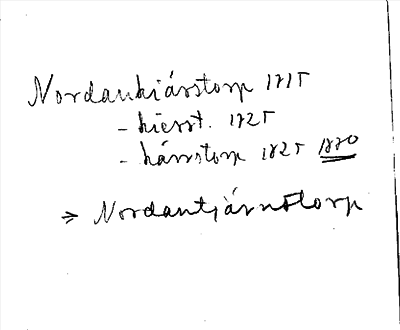 Nordankiärstorp 1715
- kierst. 1725
- kärrstorp 1825 1880
⇒ Nordantjärnstorp